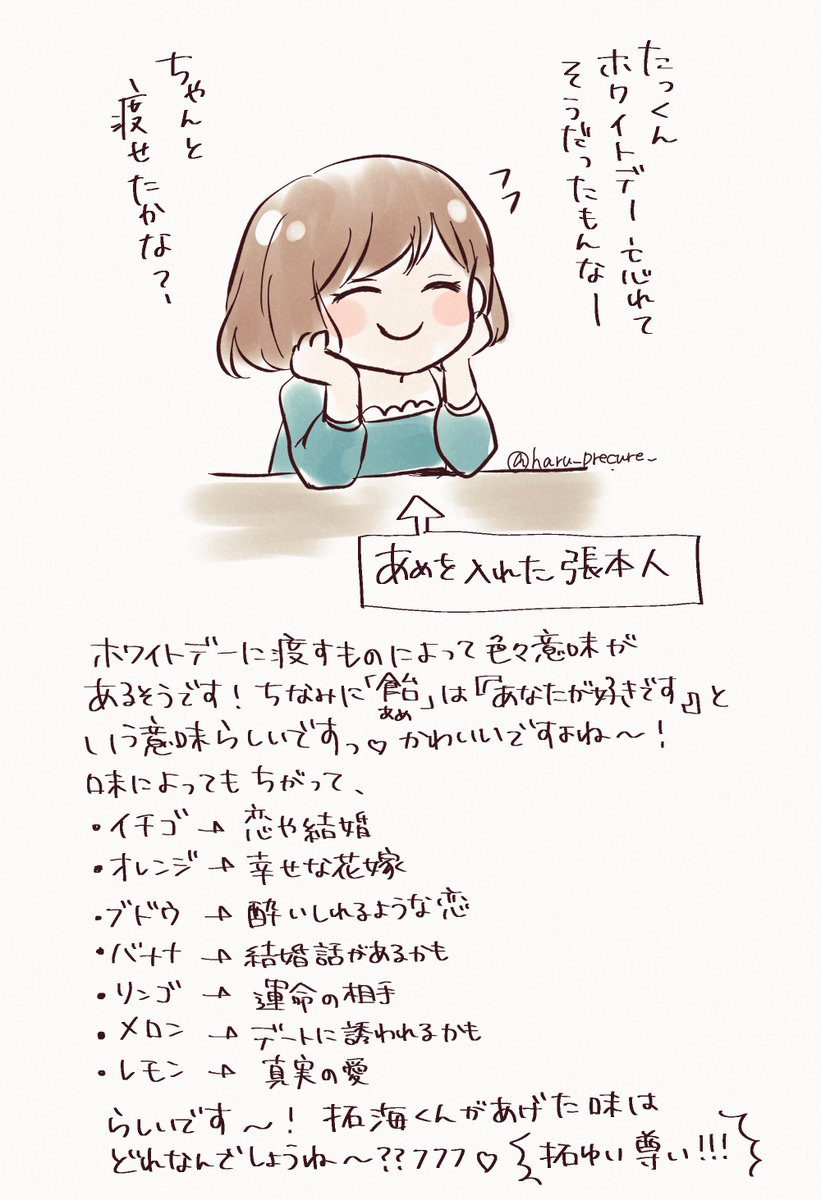 たっくん
ホワイトデー忘れて
そうだったもんなー
ちゃんと
渡せたかな?
@haru_precure_
あめを入れた張本人
ホワイトデーに渡すものによって色々意味が
あるそうです!ちなみに「飴」は『あなたが好きです』と
あめ
いう意味らしいですっ♡かわいいですよね〜!
味によってもちがって、
・イチゴ→恋や結婚
・オレンジ→幸せな花嫁
・ブドウ→酔いしれるような恋
・バナナ→結婚話があるかも
・リンゴ→運命の相手
・メロン→デートに誘われるかも
・レモン→真実の愛
らしいです〜!拓海くんがあげた味は
どれなんでしょうね〜??フフフ♡拓ゆい尊い!!!